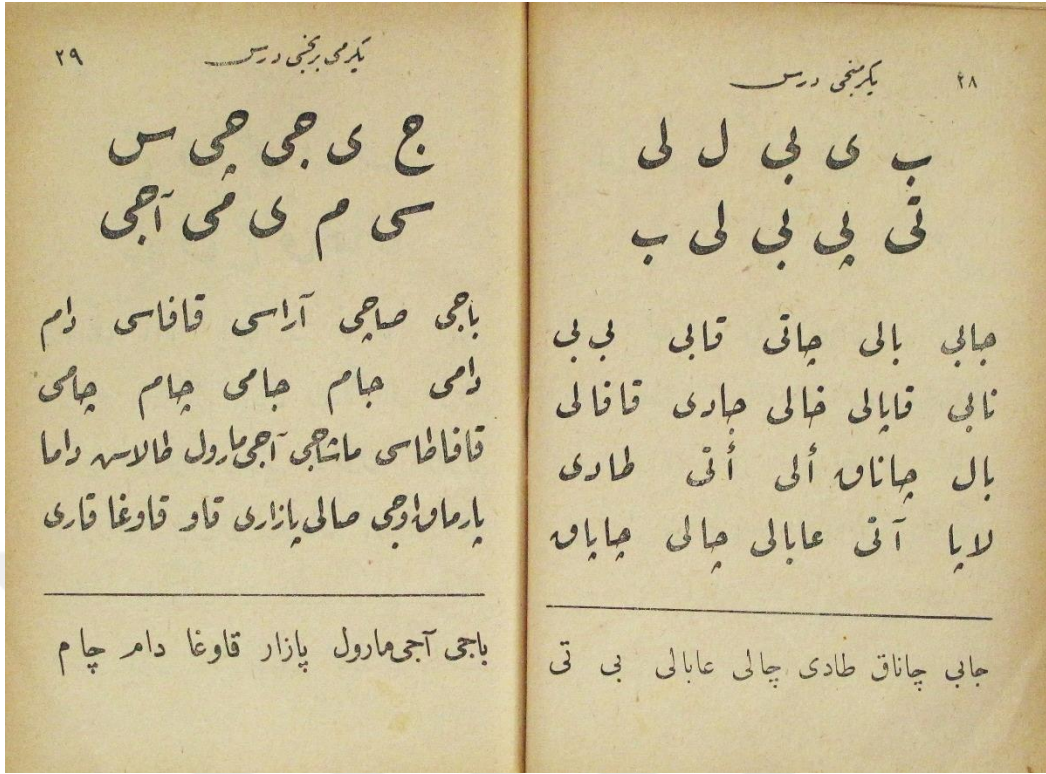 ٢٨ یکرمنجی درس
ب ی بی ل لی
تی پی بی لی ب
جابی بالی چاتی قابی بی بی
نابی قاپالی خالی جادی قافالی
بال چاناق ألی أتی طادی
لاپا آتی عابالی چالی چاپاق
جابی چاناق طادی چالی عابالی بی تی
٢٩ یکرمی برنجی درس
ج ی جی چی س
سی م ی می آجی
باجی صاچی آراسی قافاسی دام
دامی جام جامی چام چامی
قافاطاسی ماشاجی آجی مارول طالاس داما
پارماق اوجی صالی پازاری قاو قاوغا قاری
باجی آجی مارول پازار قاوغا دام چام